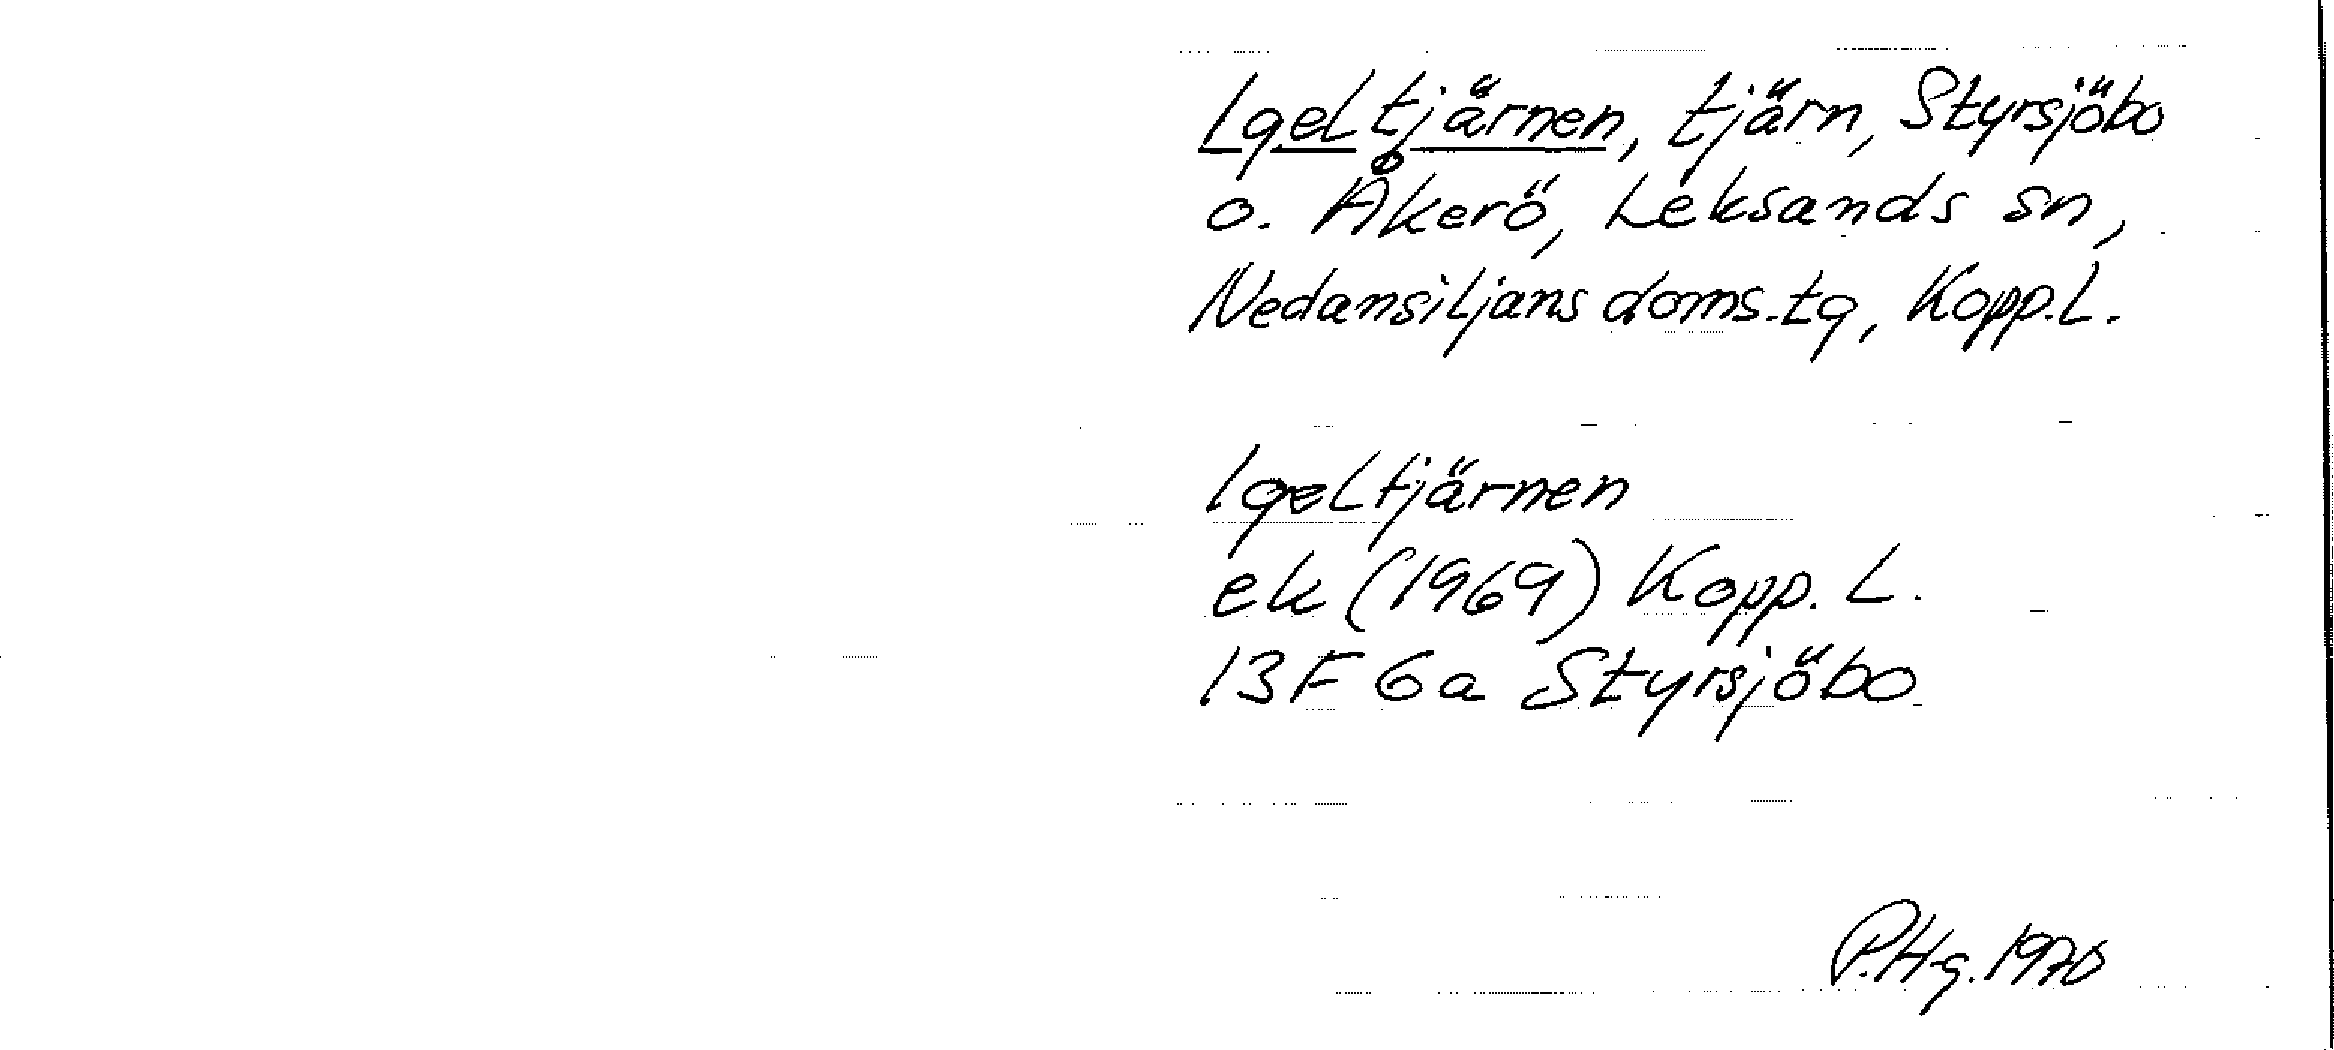 Igeltjärnen, tjärn, Styrsjöbo
o. Åkerö, Leksands sn,
Nedansiljans doms.tg, Kopp.L.
Igeltjärnen
ek (1969) Kopp. L.
13F 6a Styrsjöbo
P.Hg. 1970